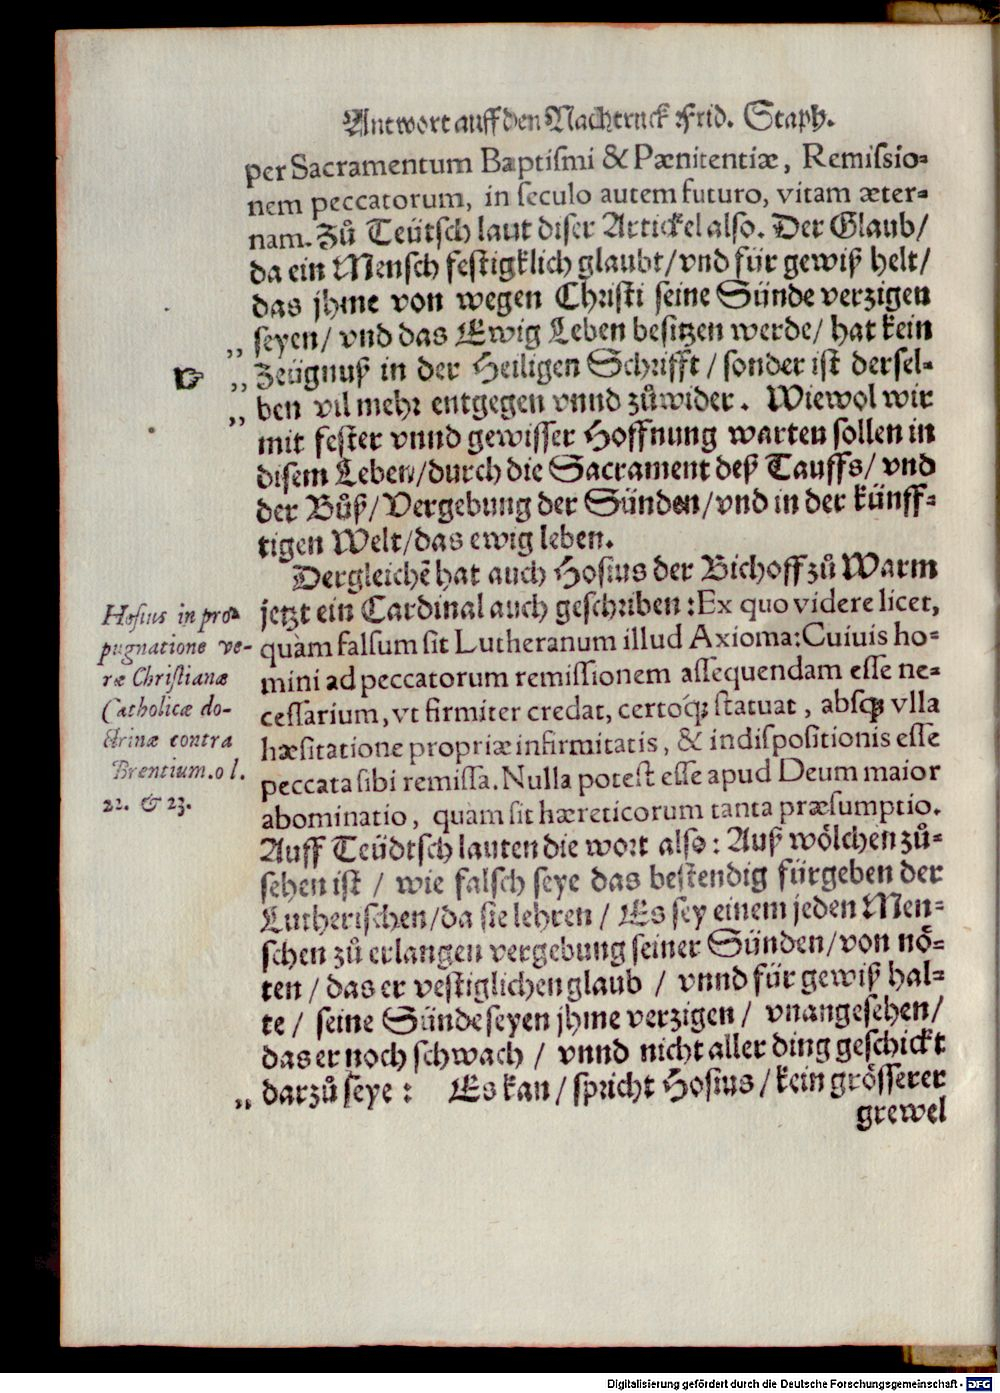 Antwort auff den Nachtruck Frid. Staph.
per Sacramentum Baptiſmi & Pænitentiæ, Remiſsio-
nem peccatorum, in ſeculo autem futuro, vitam æter-
nam. Zů Teütſch laut diſer Artickel alſo. Der Glaub/
da ein Menſch feſtigklich glaubt/vnd für gewiß helt/
das jhme von wegen Chriſti ſeine Sünde verzigen
„ ſeyen/ vnd das Ewig Leben beſitzen werde/ hat kein
☞ „ Zeügnuß in der Heiligen Schrifft / ſonder iſt derſel-
„ ben vil mehr entgegen vnnd zůwider. Wiewol wir
mit feſter vnnd gewiſſer Hoffnung warten ſollen in
diſem Leben/durch die Sacrament deß Tauffs/ vnd
der Bůß/ Vergebung der Sünden/vnd in der künff-
tigen Welt/das ewig leben.
Dergleichẽ hat auch Hoſius der Bichoff zů Warm
jetzt ein Cardinal auch geſchriben: Ex quo videre licet,
quàm falſum ſit Lutheranum illud Axioma: Cuiuis ho-
mini ad peccatorum remiſſionem aſſequendam eſſe ne-
ceſſarium, vt firmiter credat, certoq́; ſtatuat, absq; vlla
hæſitatione propriæ infirmitatis, & indiſpoſitionis eſſe
peccata ſibi remiſſa. Nulla poteſt eſſe apud Deum maior
abominatio, quàm ſit hæreticorum tanta præſumptio.
Auff Teüdtſch lauten die wort alſo: Auß wölchen zů-
ſehen iſt / wie falſch ſeye das beſtendig fürgeben der
Lutheriſchen/da ſie lehren / Es ſey einem jeden Men-
ſchen zů erlangen vergebung ſeiner Sünden/von nö-
ten / das er veſtiglichen glaub / vnnd für gewiß hal-
te / ſeine Sünde ſeyen jhme verzigen / vnangeſehen/
das er noch ſchwach / vnnd nicht aller ding geſchickt
„ darzů ſeye : Es kan / ſpricht Hoſius / kein gröſſerer
grewel
Hoſius in pro-
pugnatione ve-
ræ Chriſtianæ
Catholicæ do-
ctrinæ contra
Brentium. o l.
22. & 23.
Digitalisierung gefördert durch die Deutsche Forschungsgemeinschaft - DFG